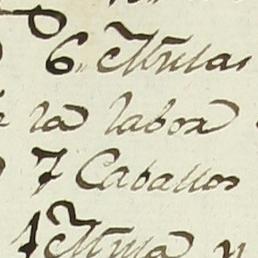 6. Mulas
la labor
7 Caballos
1 Mula y